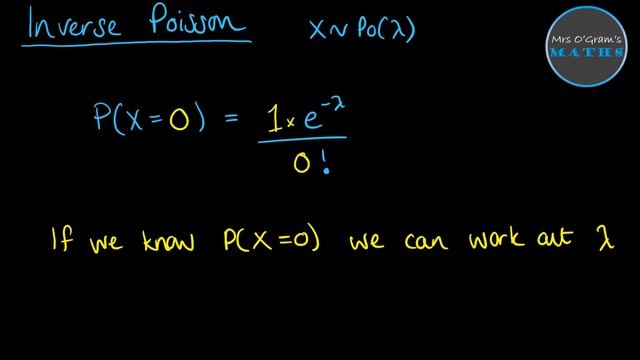 Inverse Poisson X ~ Po(λ)
Mrs O'Gram's
MATHS
P(X = 0) = 1 × e^-λ / 0!
If we know P(X = 0) we can work out λ